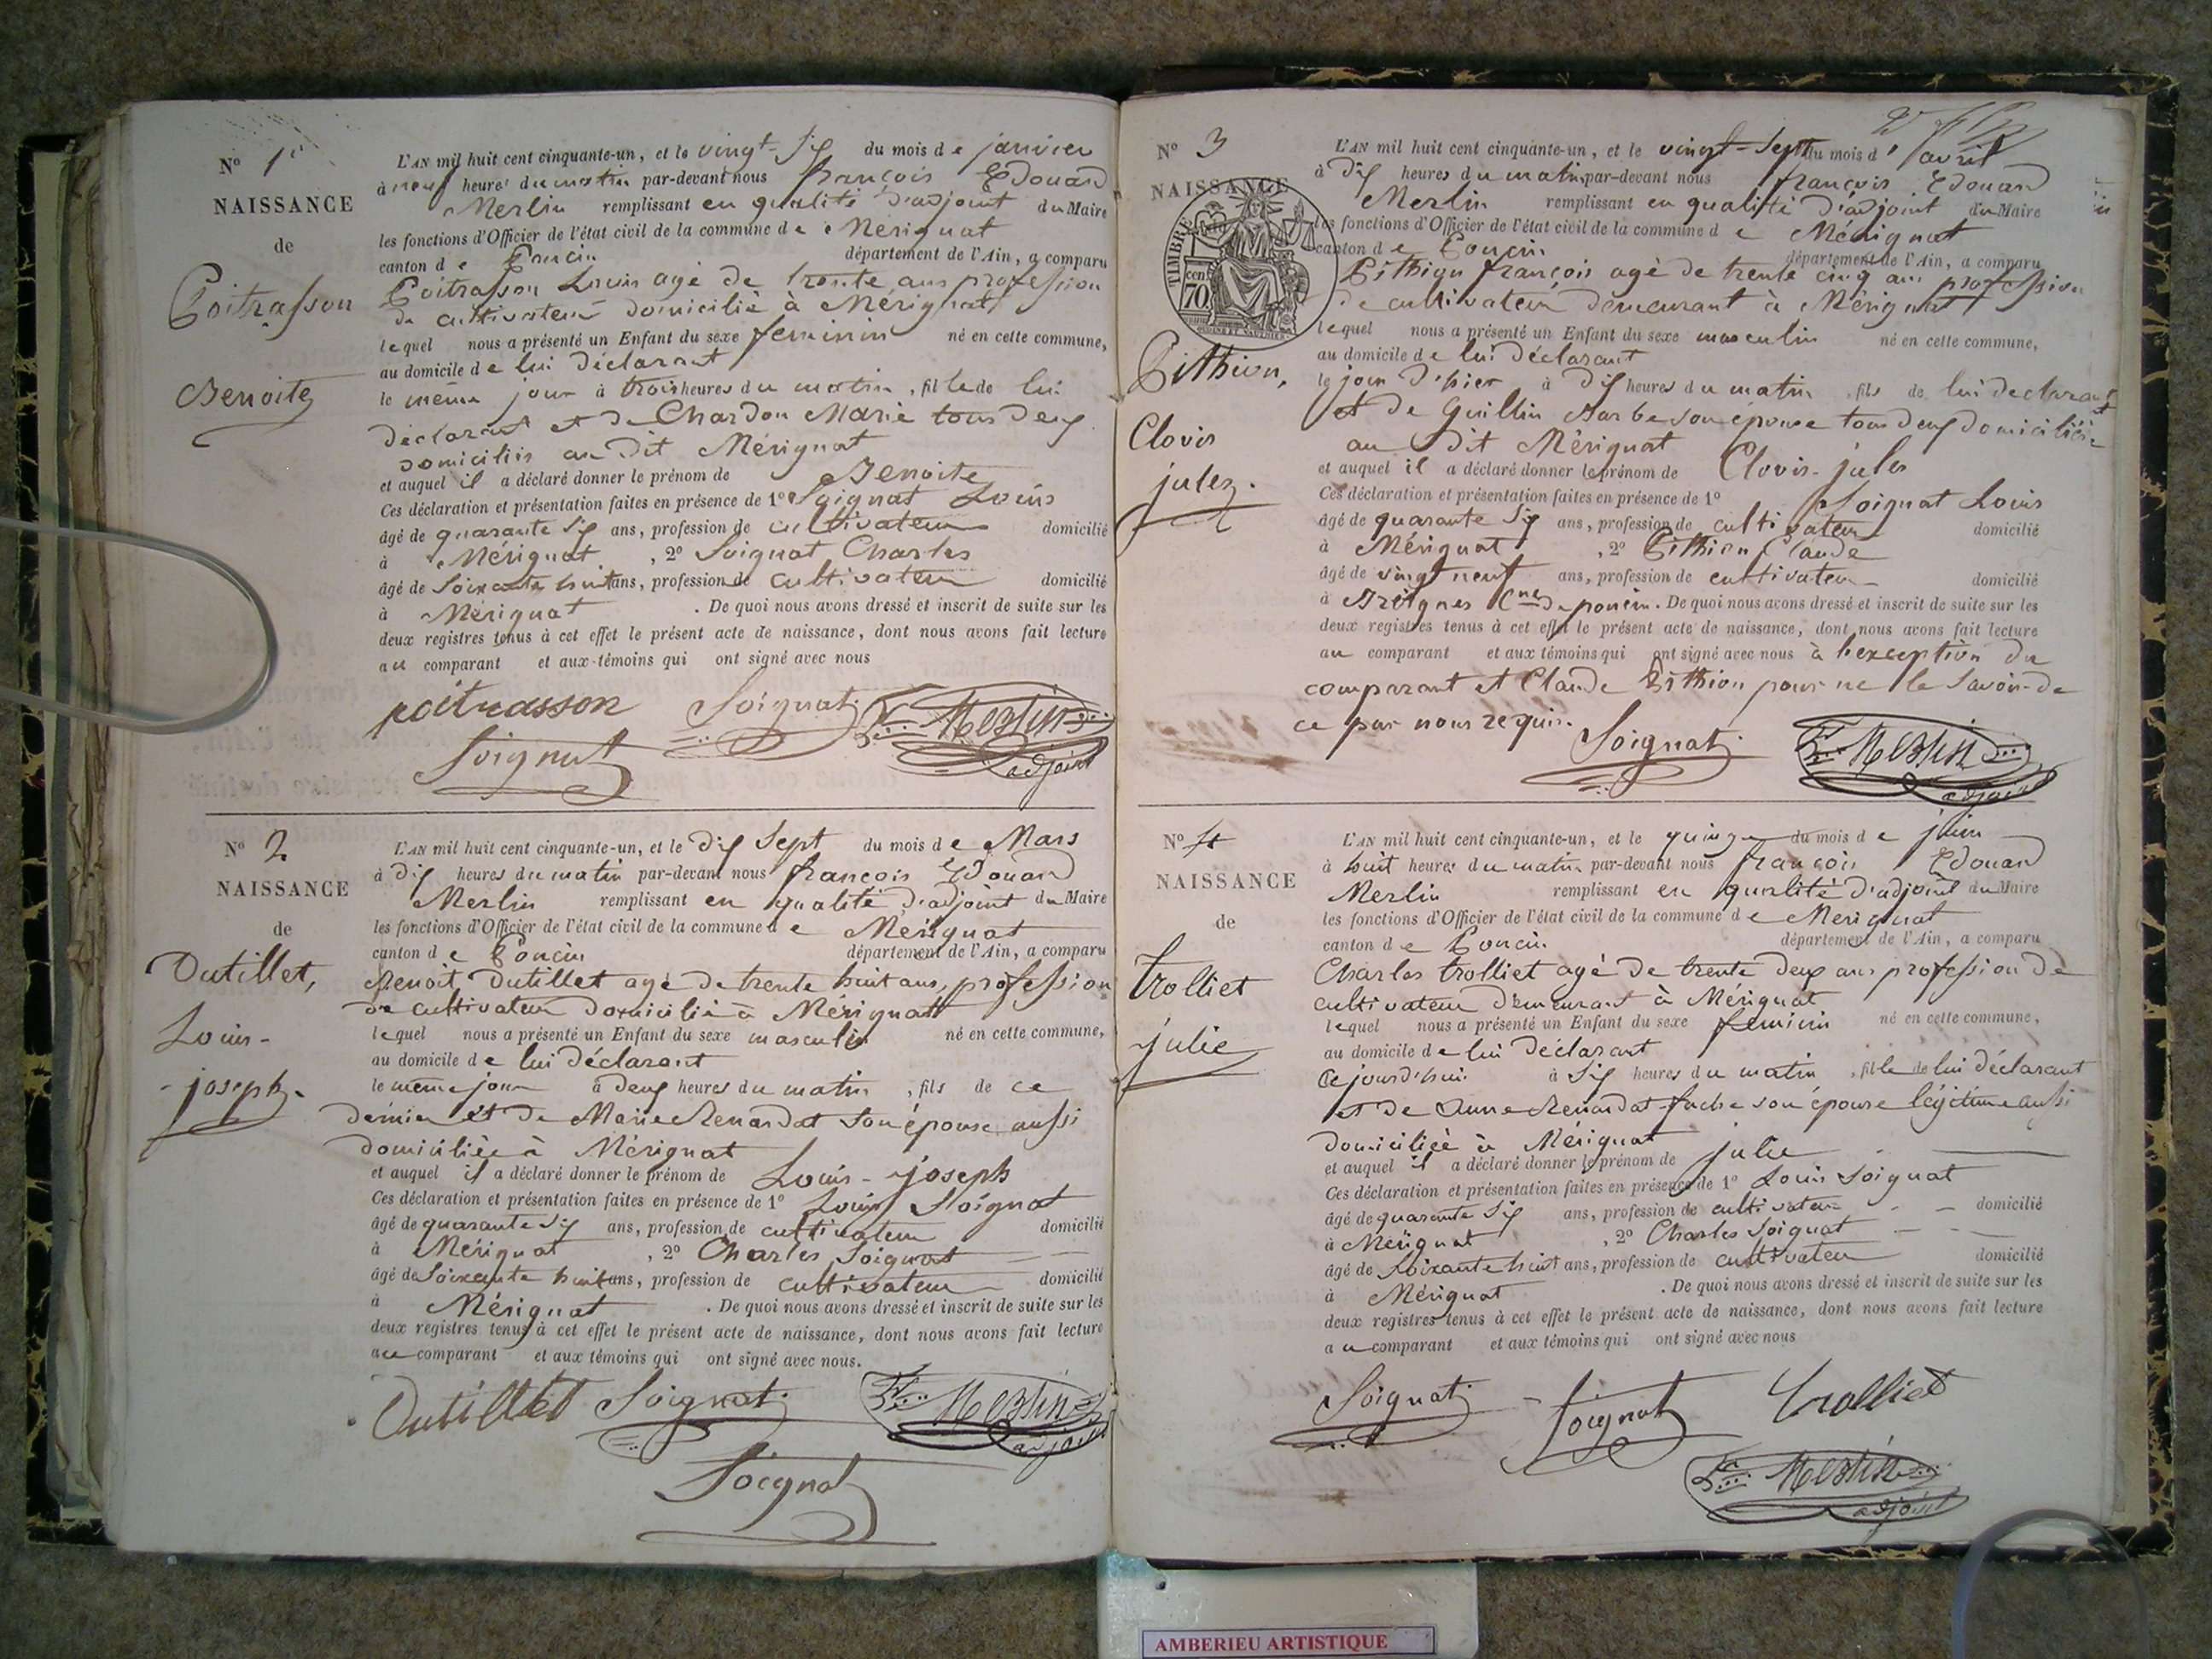 N° 1er
NAISSANCE
de
Poitrasson
Benoite
L'AN mil huit cent cinquante-un, et le vingt-six du mois de janvier
à neuf heures du matin par-devant nous françois Edouard
Merlin remplissant en qualité d'adjoint du Maire
les fonctions d'Officier de l'état civil de la commune de Mérignat
canton de Poncin département de l'Ain, a comparu
Poitrasson Louis agé de trente ans profession
de cultivateur domicilié à Mérignat
lequel nous a présenté un Enfant du sexe feminin né en cette commune,
au domicile de lui déclarant
le même jour à trois heures du matin, fille de lui
déclarant et de Chardon Marie tous deux
domiciliés au dit Mérignat
et auquel il a déclaré donner le prénom de Benoite
Ces déclaration et présentation faites en présence de 1° Soignat Louis
âgé de quarante six ans, profession de cultivateur domicilié
à Mérignat, 2° Soignat Charles
âgé de soixante huit ans, profession de cultivateur domicilié
à Mérignat. De quoi nous avons dressé et inscrit de suite sur les
deux registres tenus à cet effet le présent acte de naissance, dont nous avons fait lecture
au comparant et aux témoins qui ont signé avec nous
poitrasson Soignat Merlin
Soignat adjoint
N° 2
NAISSANCE
de
Dutillet,
Louis-
joseph.
L'AN mil huit cent cinquante-un, et le dix sept du mois de Mars
à dix heures du matin par-devant nous françois Edouard
Merlin remplissant en qualité d'adjoint du Maire
les fonctions d'Officier de l'état civil de la commune de Mérignat
canton de Poncin département de l'Ain, a comparu
Benoit Dutillet agé de trente huit ans, profession
de cultivateur domicilié à Mérignat
lequel nous a présenté un Enfant du sexe masculin né en cette commune,
au domicile de lui déclarant
le même jour à deux heures du matin, fils de ce
dernier et de Marie Renardat son épouse aussi
domiciliée à Mérignat
et auquel il a déclaré donner le prénom de Louis-joseph
Ces déclaration et présentation faites en présence de 1° Louis Soignat
âgé de quarante six ans, profession de cultivateur domicilié
à Mérignat, 2° Charles Soignat
âgé de soixante huit ans, profession de cultivateur domicilié
à Mérignat. De quoi nous avons dressé et inscrit de suite sur les
deux registres tenus à cet effet le présent acte de naissance, dont nous avons fait lecture
au comparant et aux témoins qui ont signé avec nous.
Dutillet Soignat Merlin
adjoint
Soignat
N° 3
NAISSANCE
TIMBRE
cen
70
Pithion,
Clovis
jules.
L'AN mil huit cent cinquante-un, et le vingt-sept du mois d'avril
à dix heures du matin par-devant nous françois Edouard
Merlin remplissant en qualité d'adjoint du Maire
les fonctions d'Officier de l'état civil de la commune de Mérignat
canton de Poncin département de l'Ain, a comparu
Pithion françois agé de trente cinq ans profession
de cultivateur demeurant à Mérignat
lequel nous a présenté un Enfant du sexe masculin né en cette commune,
au domicile de lui déclarant
le jour d'hier à dix heures du matin, fils de lui declarant
et de Guillin Barbe son épouse tous deux domiciliés
au dit Mérignat
et auquel il a déclaré donner le prénom de Clovis-jules
Ces déclaration et présentation faites en présence de 1° Soignat Louis
âgé de quarante six ans, profession de cultivateur domicilié
à Mérignat, 2° Pithion Claude
âgé de vingt neuf ans, profession de cultivateur domicilié
à Breignes Cne de poncin. De quoi nous avons dressé et inscrit de suite sur les
deux registres tenus à cet effet le présent acte de naissance, dont nous avons fait lecture
au comparant et aux témoins qui ont signé avec nous à l'exception du
comparant et Claude Pithion pour ne le savoir de
ce par nous requis.
Soignat Merlin
adjoint
N° 4
NAISSANCE
de
trolliet
julie
L'AN mil huit cent cinquante-un, et le quinze du mois de juin
à huit heures du matin par-devant nous françois Edouard
Merlin remplissant en qualité d'adjoint du Maire
les fonctions d'Officier de l'état civil de la commune de Merignat
canton de Poncin département de l'Ain, a comparu
Charles trolliet agé de trente deux ans profession de
cultivateur demeurant à Mérignat
lequel nous a présenté un Enfant du sexe feminin né en cette commune,
au domicile de lui déclarant
cejourd'hui à six heures du matin, fille de lui déclarant
et de Anne Renardat-fache son épouse légitime aussi
domiciliée à Mérignat
et auquel il a déclaré donner le prénom de julie
Ces déclaration et présentation faites en présence de 1° Louis Soignat
âgé de quarante six ans, profession de cultivateur domicilié
à Mérignat, 2° Charles Soignat
âgé de soixante huit ans, profession de cultivateur domicilié
à Mérignat. De quoi nous avons dressé et inscrit de suite sur les
deux registres tenus à cet effet le présent acte de naissance, dont nous avons fait lecture
au comparant et aux témoins qui ont signé avec nous
Soignat Soignat trolliet
Merlin
adjoint
AMBERIEU ARTISTIQUE